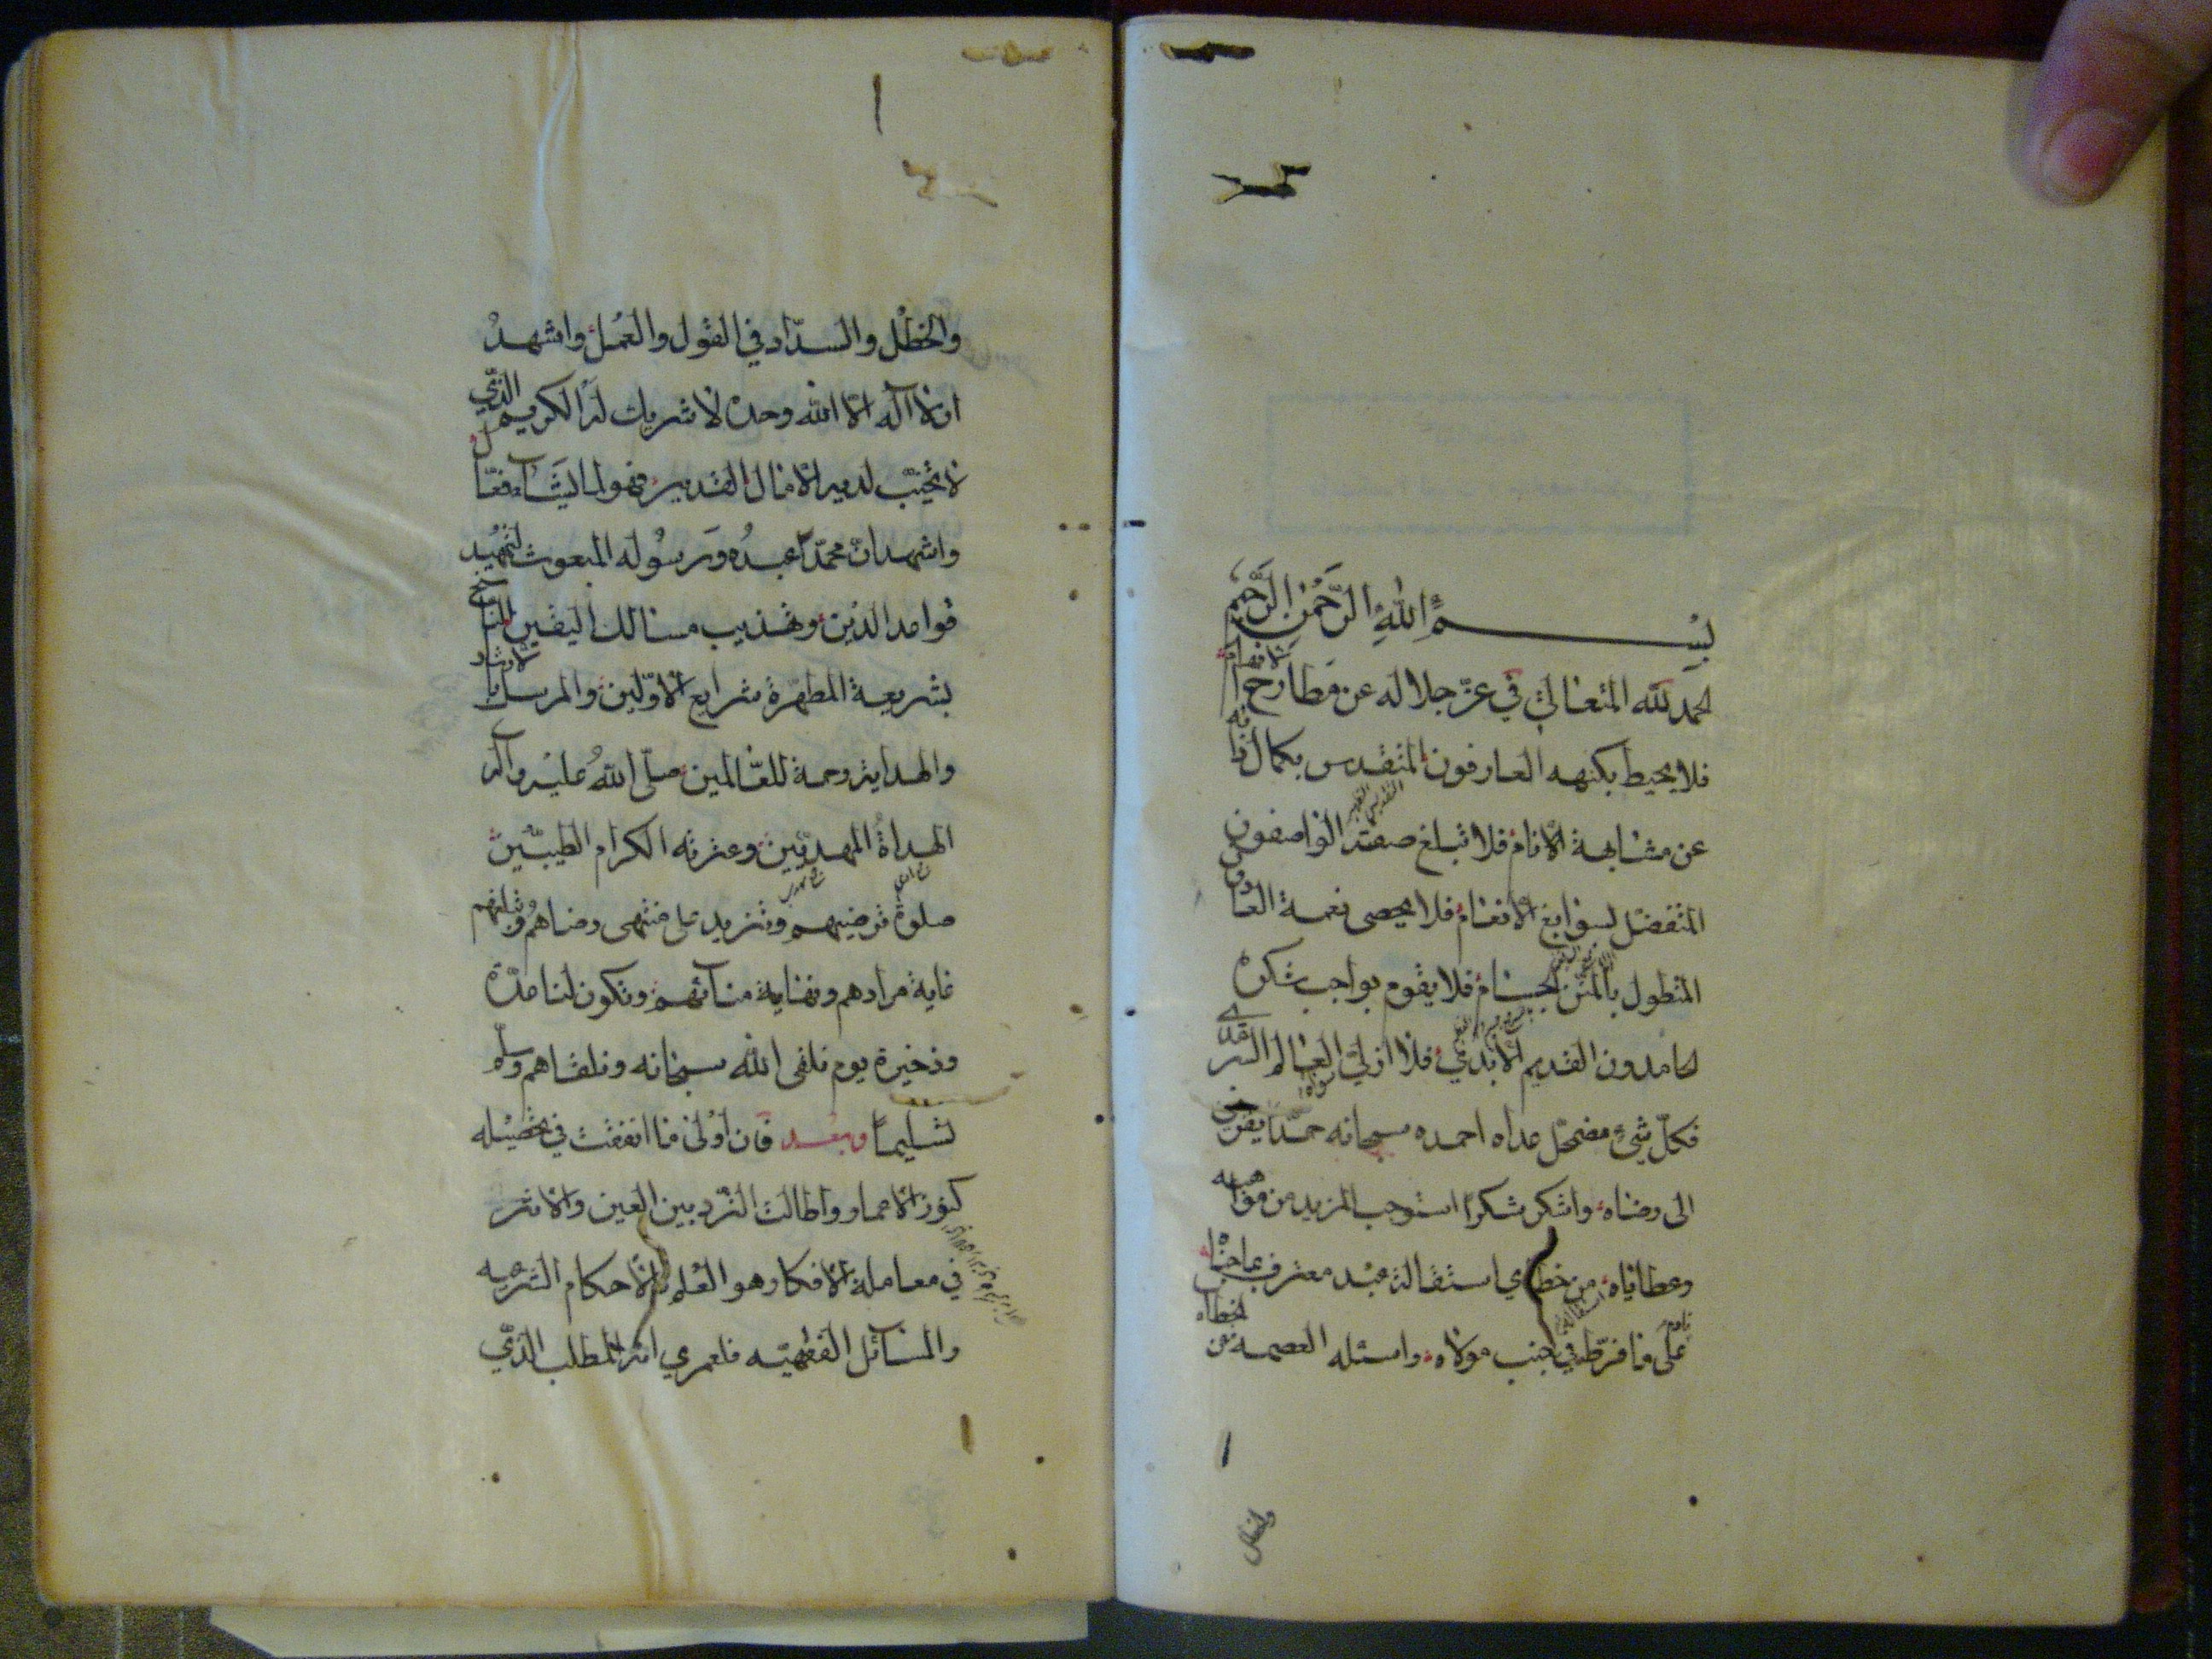 بسم الله الرحمن الرحيم
الحمد لله المتعالي في عز جلاله عن مطارح الافهام
فلا يحيط بكنهه العارفون المتقدس بكمال ذاته
عن مشابهة الانام فلا تبلغ صفته الواصفون
المتفضل بسوابغ الانعام فلا يحصى نعمة العادون
المتطول بالمنن الجسام فلا يقوم بواجب شكره
الحامدون القديم الابدي فلا ازلي العالم السرمدي
فكل شيء مضمحل عداه احمده سبحانه حمدا يقربني
الى رضاه واشكره شكرا استوجب المزيد من مواهبه
وعطاياه من خطاي استقالة عبد معترف بما جناه
نادم على ما فرط في جنب مولاه واسئله العصمة من الخطاء
والخطل
والخطل والسداد في القول والعمل واشهد
ان لا اله الا الله وحده لا شريك له الكريم الذي
لا يخيب لديه الامال القدير فهو لما يشاء فعال
واشهد ان محمدا عبده ورسوله المبعوث لتمهيد
قواعد الدين وتهذيب مسالك اليقين الناسخ
بشريعة المطهرة شرايع الاولين والمرسل بالارشاد
والهداية رحمة للعالمين صلى الله عليه وآله
الهداة المهديين وعترته الكرام الطيبين
صلوة ترضيهم وتزيد على منتهى رضاهم وتبلغهم
غاية مرادهم ونهاية مناهم وتكون لنا عدة
وذخيرة يوم نلقى الله سبحانه ونلقاهم وسلم
تسليما وبعد فان اولى ما انفقت في تحصيله
كنوز الاعمار واطالت التردد بين العين والاثر
في معاملة الافكار هو العلم بالاحكام الشرعيه
والمسائل الفقهيه فلعمري انه المطلب الذي